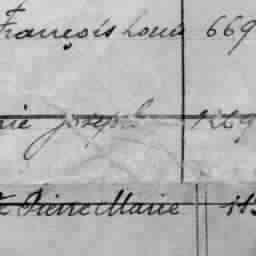 François Louis 669
rie Joseph 1269
Pierre Marie 113